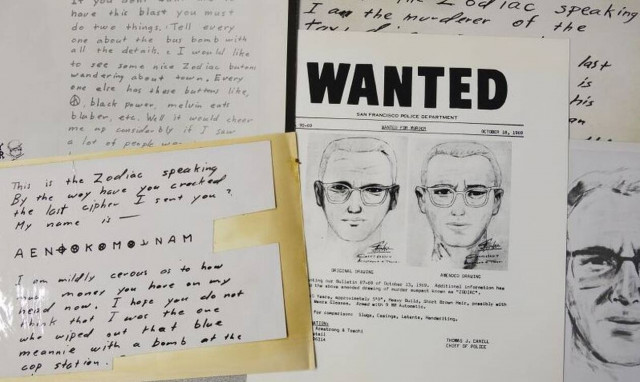 If you don't want me to
have this blast you must
do two things. Tell every
one about the bus bomb with
all the details. I would like
to see some nice Zodiac butons
wandering about town. Every
one else has these buttons like,
☮, black power, melvin eats
bluber, etc. Well it would cheer
me up considerbly if I saw
a lot of people
This is the Zodiac speaking
By the way have you cracked
the last cipher I sent you?
My name is —
AEN⊕⊗K⊗M⊗⅃NAM
I am mildly cerous as to how
money you have on my
head now. I hope you do not
think that I was the one
who wiped out that blue
meannie with a bomb at the
cop station.
Zodiac speaking
I am the murderer of the
last
is
his
WANTED
SAN FRANCISCO POLICE DEPARTMENT
WANTED FOR MURDER
OCTOBER 18, 1969
ORIGINAL DRAWING
AMENDED DRAWING
our Bulletin 87-69 of October 13, 1969. Additional information has
the above amended drawing of murder suspect known as "ZODIAC".
Years, approximately 5'8", Heavy Build, Short Brown Hair, possibly with
Glasses. Armed with 9 MM Automatic.
for comparison: Slugs, Casings, Latents, Handwriting.
Armstrong & Toschi
THOMAS J. CAHILL
CHIEF OF POLICE